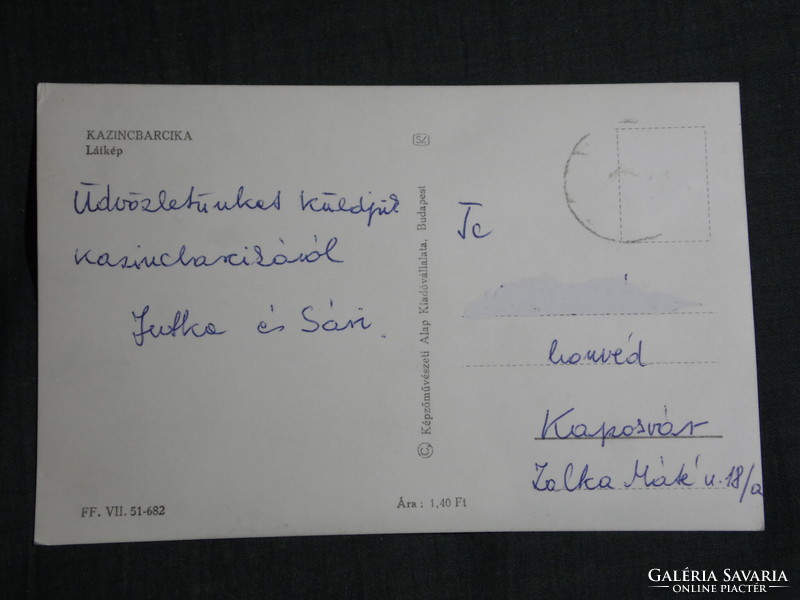 KAZINCBARCIKA
Látkép
Üdvözletünket küldjük
Kazincbarcikáról
Jutka és Sári.
FF. VII. 51-682
© Képzőművészeti Alap Kiadóvállalata, Budapest
Ára: 1,40 Ft
SZ
honvéd
Kaposvár
Zalka Máté u. 18/a
GALÉRIA SAVARIA
ONLINE PIACTÉR